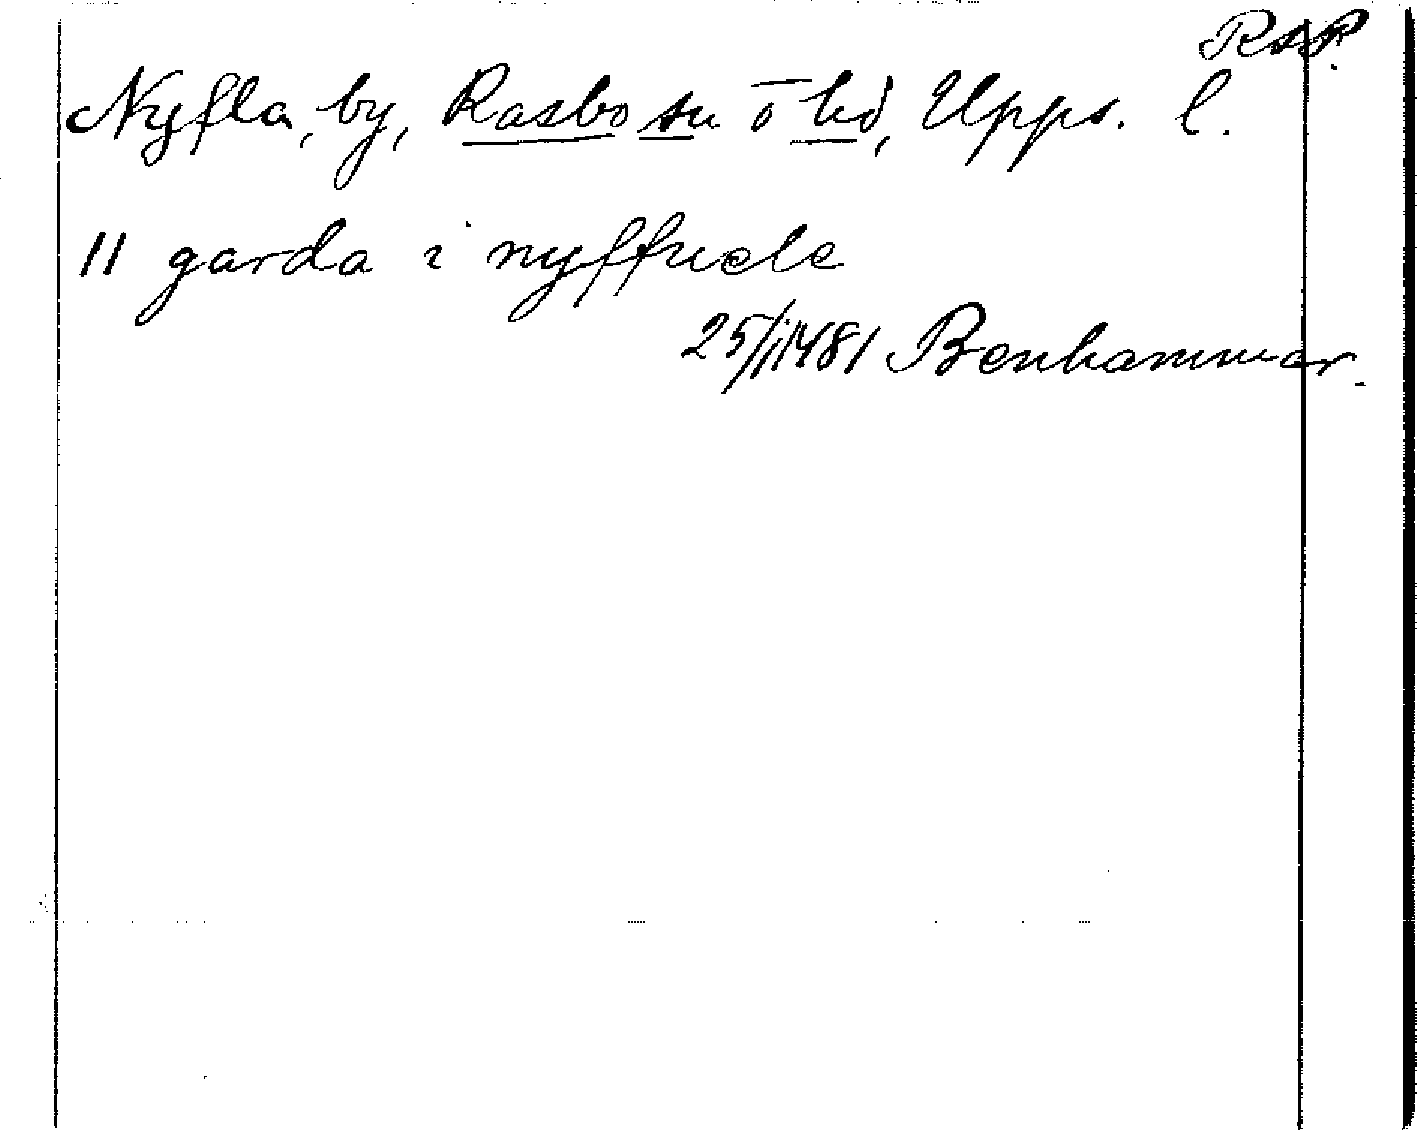 RAP.
Nyfla, by, Rasbo sn o hd, Upps. l.
11 garda i nyffucle
25/11 1481 Benhammar.